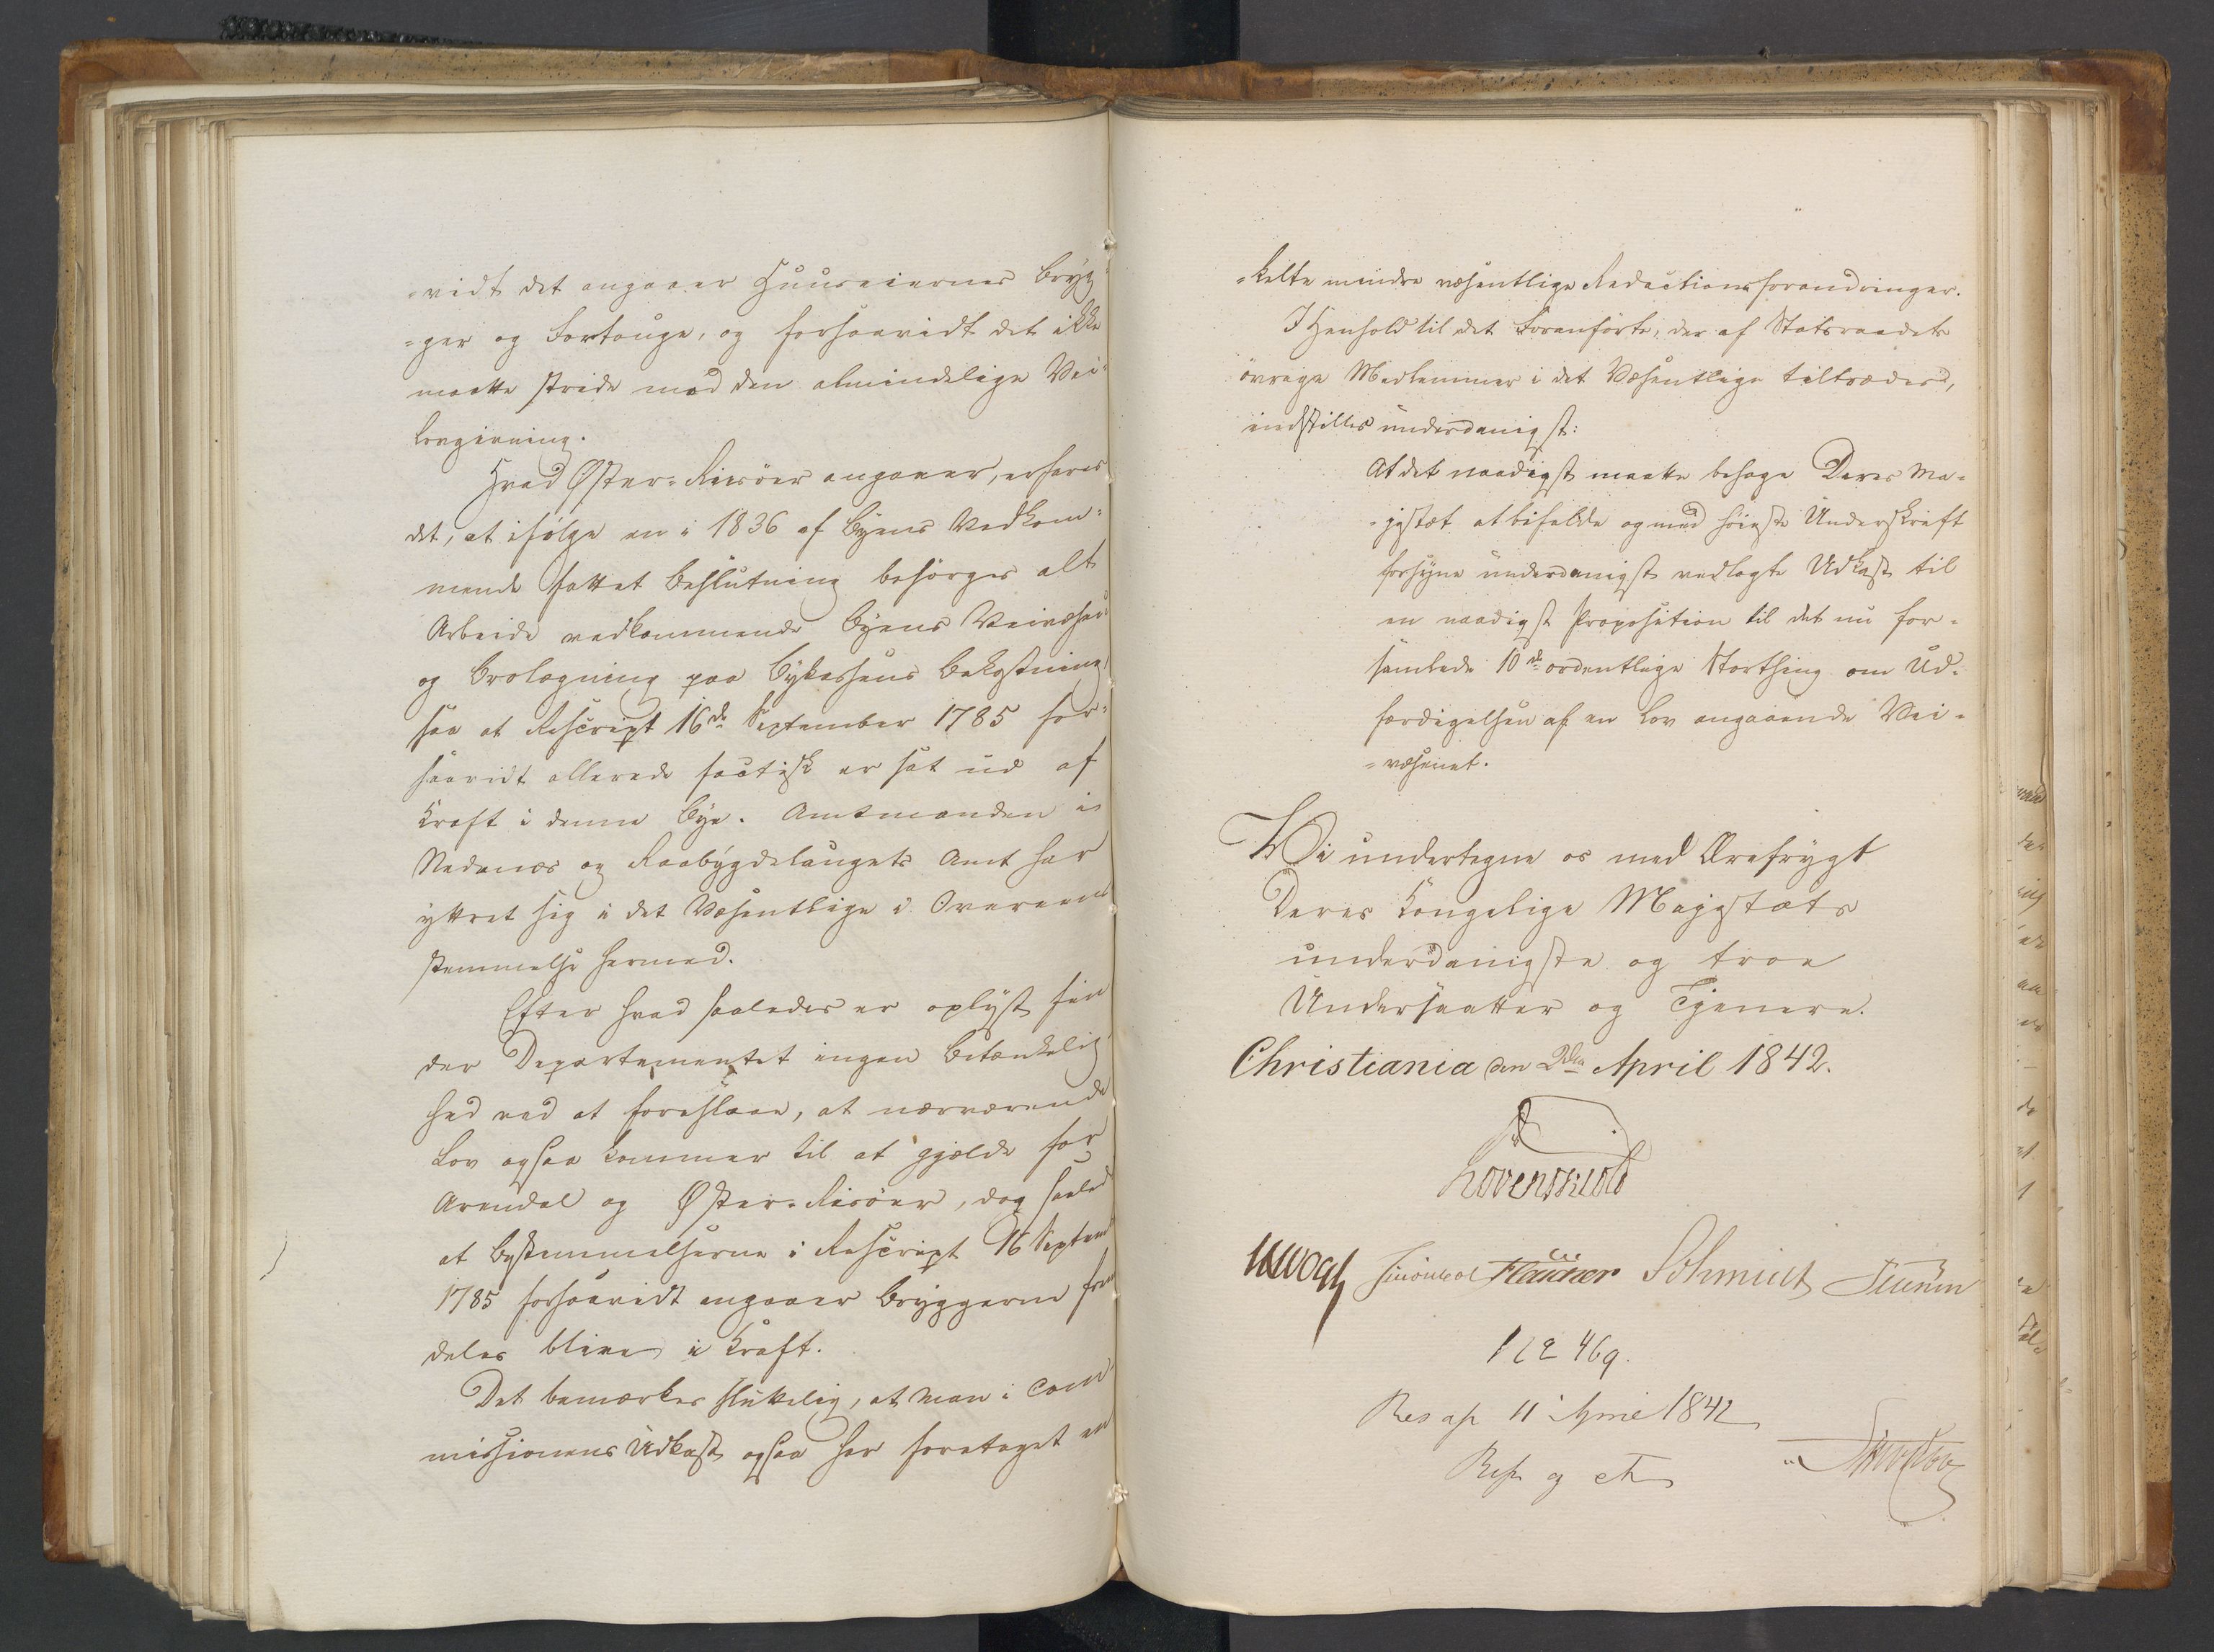 -vidt det angaaer Huuseiernes Bryg¬
-ger og Fortouge, og forsaavidt det ikke
maatte stride mod den almindelige Vei¬
lovgivning.
Hvad Øster-Riisöer angaaer, erfares
det, at ifølge en i 1836 af Byens Vedkom¬
mende fattet Beslutning besörges alt
Arbeide vedkommende Byens Veivæsen
og Brolægning paa Bykassens Bekostning,
saa at Rescript 16de September 1785 for¬
saavidt allerede factisk er sat ud af
Kraft i denne Bye. Amtmanden i
Nedenæs og Raabygdelaugets Amt har
yttret sig i det Væsentlige i Overeens
stemmelse hermed.
Efter hvad saaledes er oplyst fin
der Departementet ingen Betænkelig
hed ved at foreslaae, at nærværende
Lov ogsaa kommer til at gjælde for
Arendal og Øster-Riisöer, dog saaled
at Bestemmelserne i Rescript 16 Septem
1785 forsaavidt angaaer Bryggerne frem
deles blive i Kraft.
Det bemærkes sluttelig, at man i Com
missionens Udkast ogsaa har foretaget en
-kelte mindre væsentlige Redactionsforandringer.
I Henhold til det Foranförte, der af Statsraadets
övrige Medlemmer i det Væsentlige tiltrædes,
indstilles underdanigst:
At det naadigst maatte behage Deres Ma-
-jestæt at bifalde og med höieste Underskrift
forsyne underdanigst vedlagte Udkast til
en naadigst Proposition til det nu for-
samlede 10de ordentlige Storthing om Ud-
færdigelsen af en Lov angaaende Vei-
-væsenet.
Vi undertegne os med Ærefrygt
Deres Kongelige Majestæts
underdanigste og troe
Undersaatter og Tjenere.
Christiania den 2den April 1842.
Løvenskiold
Vogt Flauner Schmidt
469.
Res af 11 1842